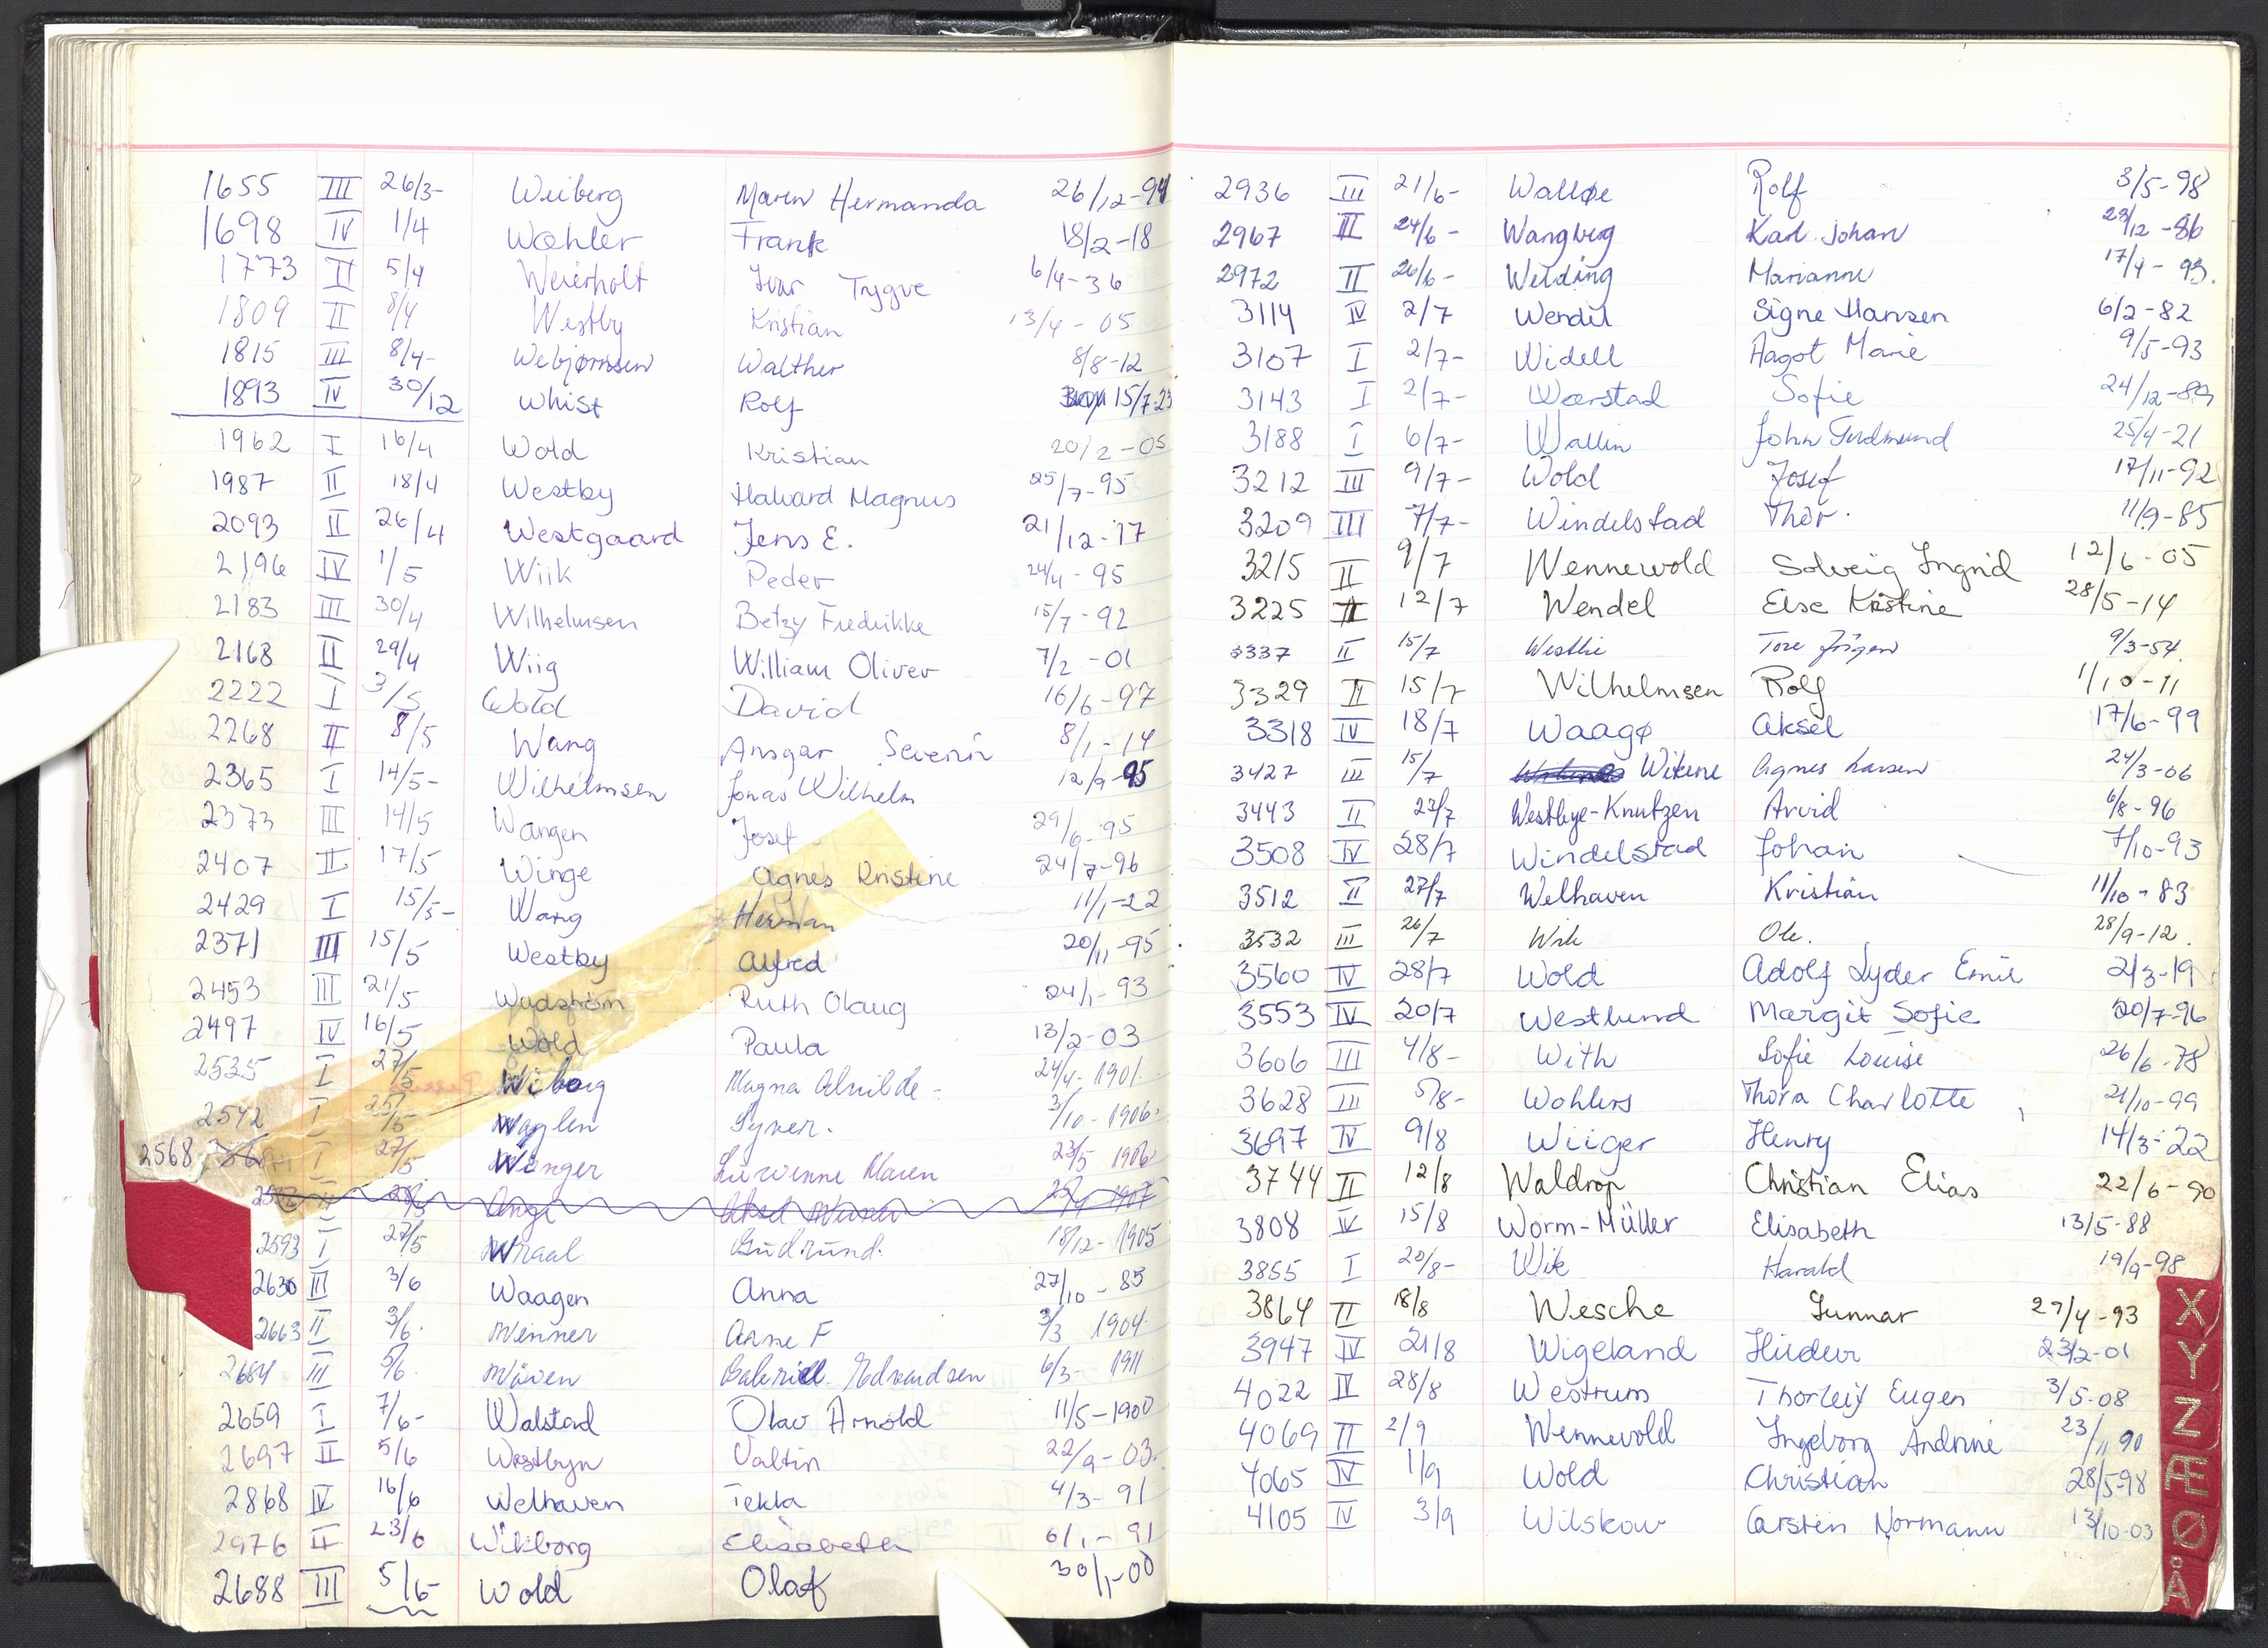 1655 III 26/3- Weiberg Maren Hermanda 26/12-94
1698 IV 1/4 Wæhler Frank 18/2-18
1773 II 5/4 Weierholt Ivar Tygve 6/4-36
1809 II 8/4 Westby Kristian 13/4-05
1815 III 8/4- Webjørnsen Walther 8/8-12
1893 IV 30/12 Whist Rolf 15/7-23
1962 I 16/4 Wold Kristian 20/2-05
1987 II 18/4 Westby Halvard Magnus 25/7-95
2093 II 26/4 Westgaard Jens E. 21/12-17
2196 IV 1/5 Wiik Peder 24/4-95
2183 III 30/4 Wilhelmsen Betzy Fredrikke 15/7-92
2168 II 29/4 Wiig William Oliver 7/2-01
2222 I 3/5 Wold David 16/6-97
2268 II 8/5 Wang Ansgar Severin 8/1-14
2365 I 14/5- Wilhelmsen Jonas Wilhelm 12/9-95
2373 III 14/5 Wangen Josef 29/6-95
2407 II 17/5 Winge Agnes Kristine 24/7-96
2429 I 15/5- Wang Herman 11/1-22
2371 III 15/5 Westby Alfred 20/11-95
2453 III 21/5 Wadström Ruth Olaug 24/1-93
2497 IV 16/5 Wold Paula 13/2-03
2535 I 27/5 Wiborg Magna 24/4-1901.
2542 I 25/5 Waglen Syver. 3/10-1906
2568 I 27/5 Wanger Maren 23/5 1906
2593 I 27/5 Wraal Gudrund. 18/12-1905
2630 III 3/6 Waagen Anna 27/10-85
2663 II 3/6. Wenner Arne F 3/3 1904
2684 III 5/6. Gabriell Edvardsen 6/3-1911
2659 I 7/6- Walstad Olav Arnold 11/5-1900
2697 II 5/6 Westbyn Valtin 22/9-03.
2868 IV 16/6 Welhaven Tekla 4/3-91
2976 II 23/6 Wikborg Elisabeth 6/1-91
2688 III 5/6- Wold Olaf 30/1-00
2936 III 21/6- Walløe Rolf 3/5-98
2967 II 24/6- Wangberg Karl Johan 28/12-86
2972 II 26/6- Weiding Marianne 17/4-93.
3114 IV 2/7 Wendel Signe Hansen 6/2-82
3107 I 2/7- Widell Aagot Marie 9/5-93
3143 I 2/7- Wærstad Sofie 24/12-89
3188 I 6/7- Wallin John Gudmund 25/4-21
3212 III 9/7- Wold Josef 17/11-92
3209 III 7/7- Windelstad Thor. 11/9-85
3215 II 9/7 Wennewold Solveig Ingrid 12/6-05
3225 II 12/7 Wendel Else Kristine 28/5-14
3337 II 15/7 Westlie Tore Jörgen 9/3-54
3329 II 15/7 Wilhelmsen Rolf 1/10-11
3318 IV 18/7 Waagø Aksel 17/6-99
3427 III 15/7 Witene Agnes Larsen 24/3-06
3443 II 23/7 Westbye-Knutzen Arvid 6/8-96
3508 IV 28/7 Windelstad Johan 7/10-93
3512 II 27/7 Welhaven Kristian 11/10-83
3532 III 26/7 Wik Ole. 28/9-12.
3560 IV 28/7 Wold Adolf Lyder Emil 2/3-19
3553 IV 20/7 Westlund Margit Sofie 20/7-96
3606 III 4/8- With Sofie Louise 26/6-78
3628 III 5/8- Wohlers Thora Charlotte 21/10-99
3697 IV 9/8 Wiiger Henry 14/3-22
3744 II 12/8 Waldrop Christian Elias 22/6-90
3808 IV 15/8 Worm-Müller Elisabeth 13/5-88
3855 I 20/8- Wik Harald 19/9-98
3864 II 18/8 Wesche Gunnar 27/4-93
3947 IV 21/8 Wigeland 23/2-01
4022 IV 28/8 Westrum Thorleif Eugen 3/5-08
4069 II 2/9 Wennevold Ingeborg Andrine 23/11 90
4065 IV 1/9 Wold Christian 28/5-98
4105 IV 3/9 Wilskow Carsten Normann 13/10-03
X
Y
Z
Æ
Ø
Å